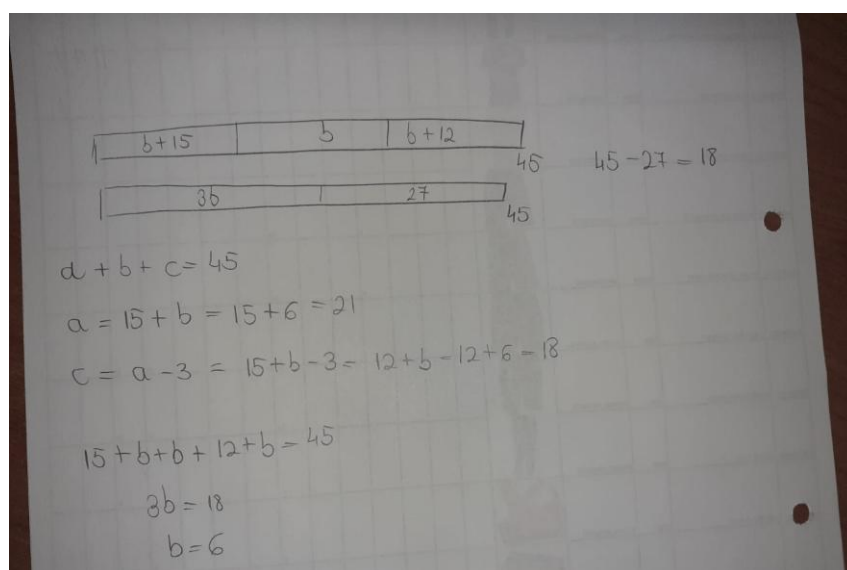 b+15 b b+12
45
45-27=18
3b 27
45
a+b+c=45
a=15+b=15+6=21
c=a-3=15+b-3=12+b-12+6=18
15+b+b+12+b=45
3b=18
b=6